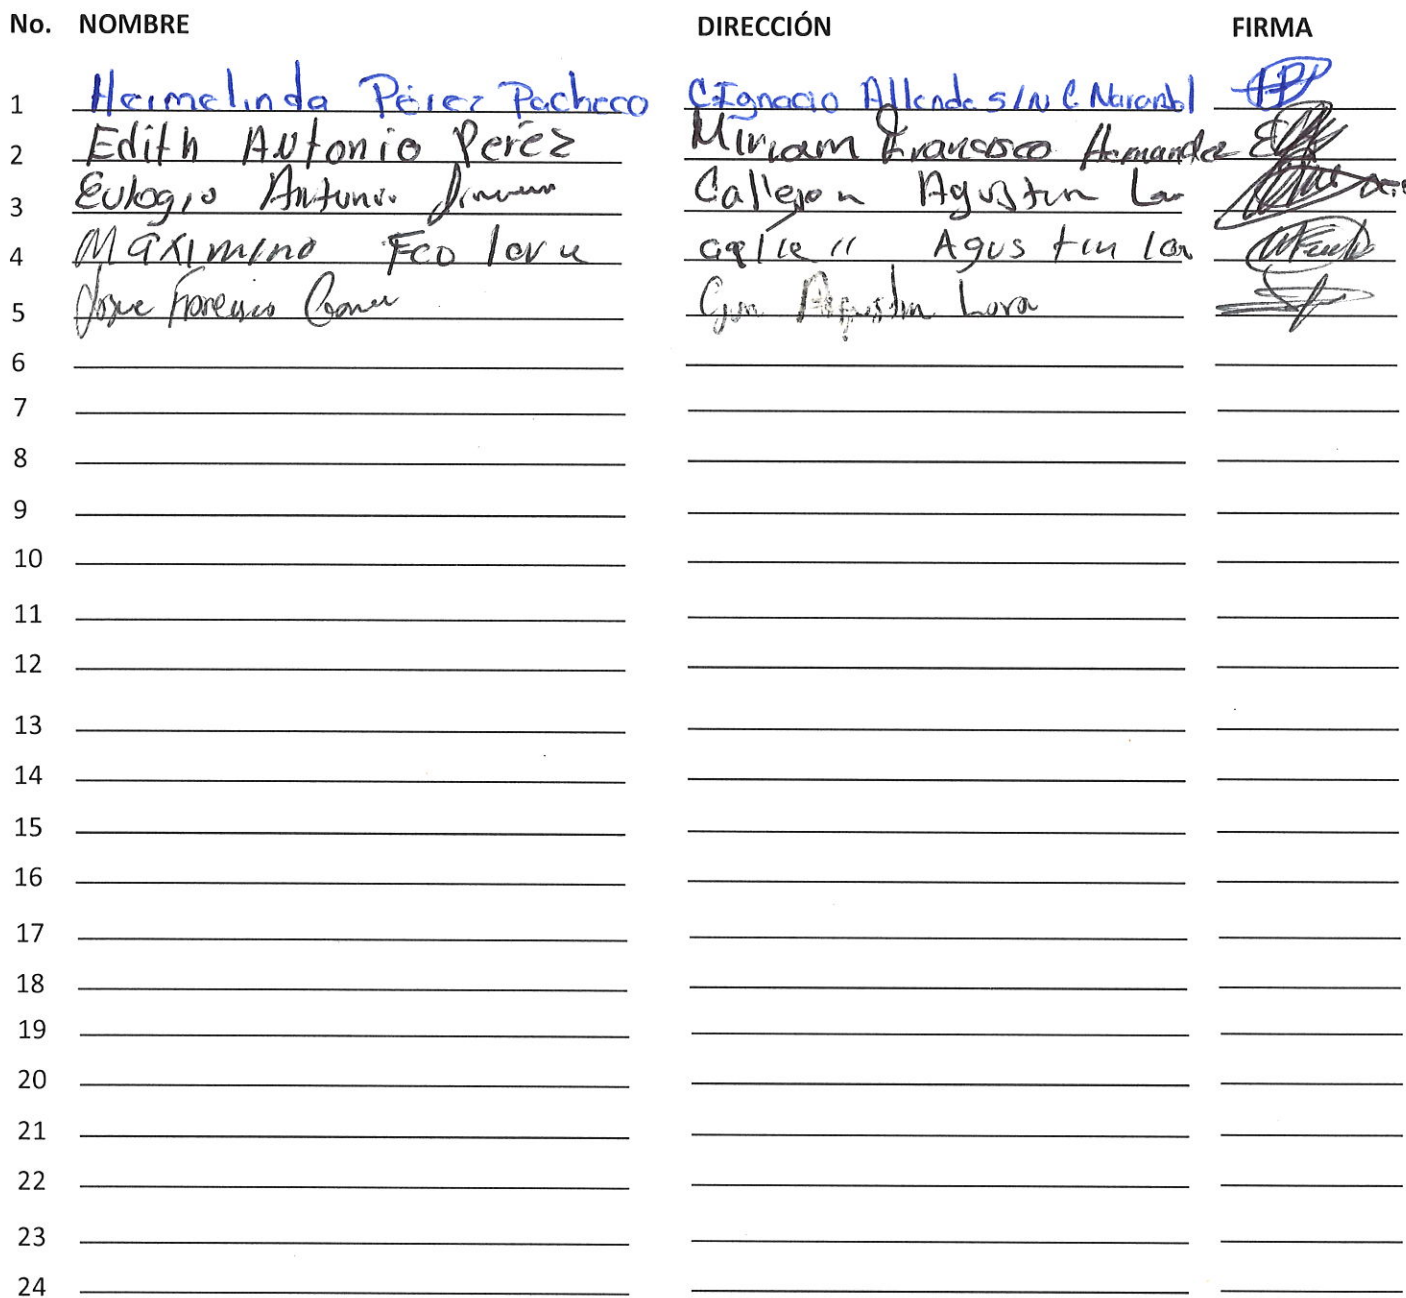 No. NOMBRE DIRECCIÓN FIRMA
1 Hermelinda Pérez Pacheco C Ignacio Allende S/N C.
2 Edith Antonio Peréz Miriam Francisco Hernandez
3 Eulogio Antonio Callejon Agustin La
4 Maximino Fco calle 11 Agustin
5 Josue Agustin Lara
6
7
8
9
10
11
12
13
14
15
16
17
18
19
20
21
22
23
24